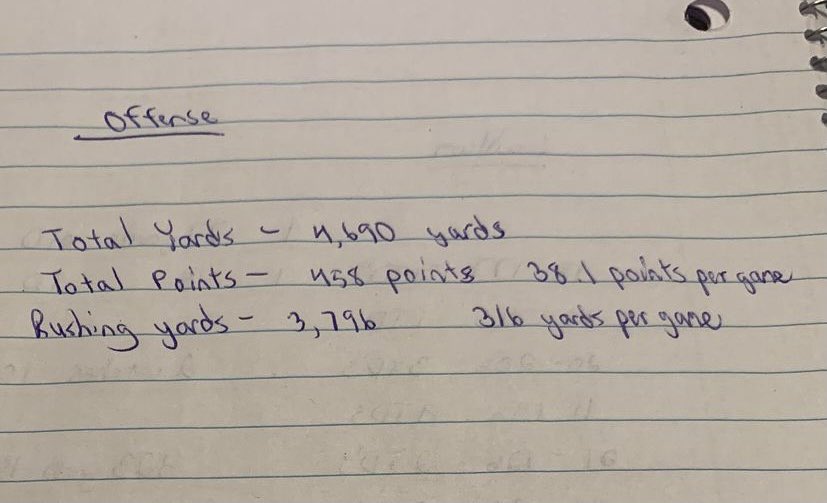 Offense
Total Yards - 4,690 yards
Total Points - 458 points 38.1 points per game
Rushing yards - 3,796 316 yards per game